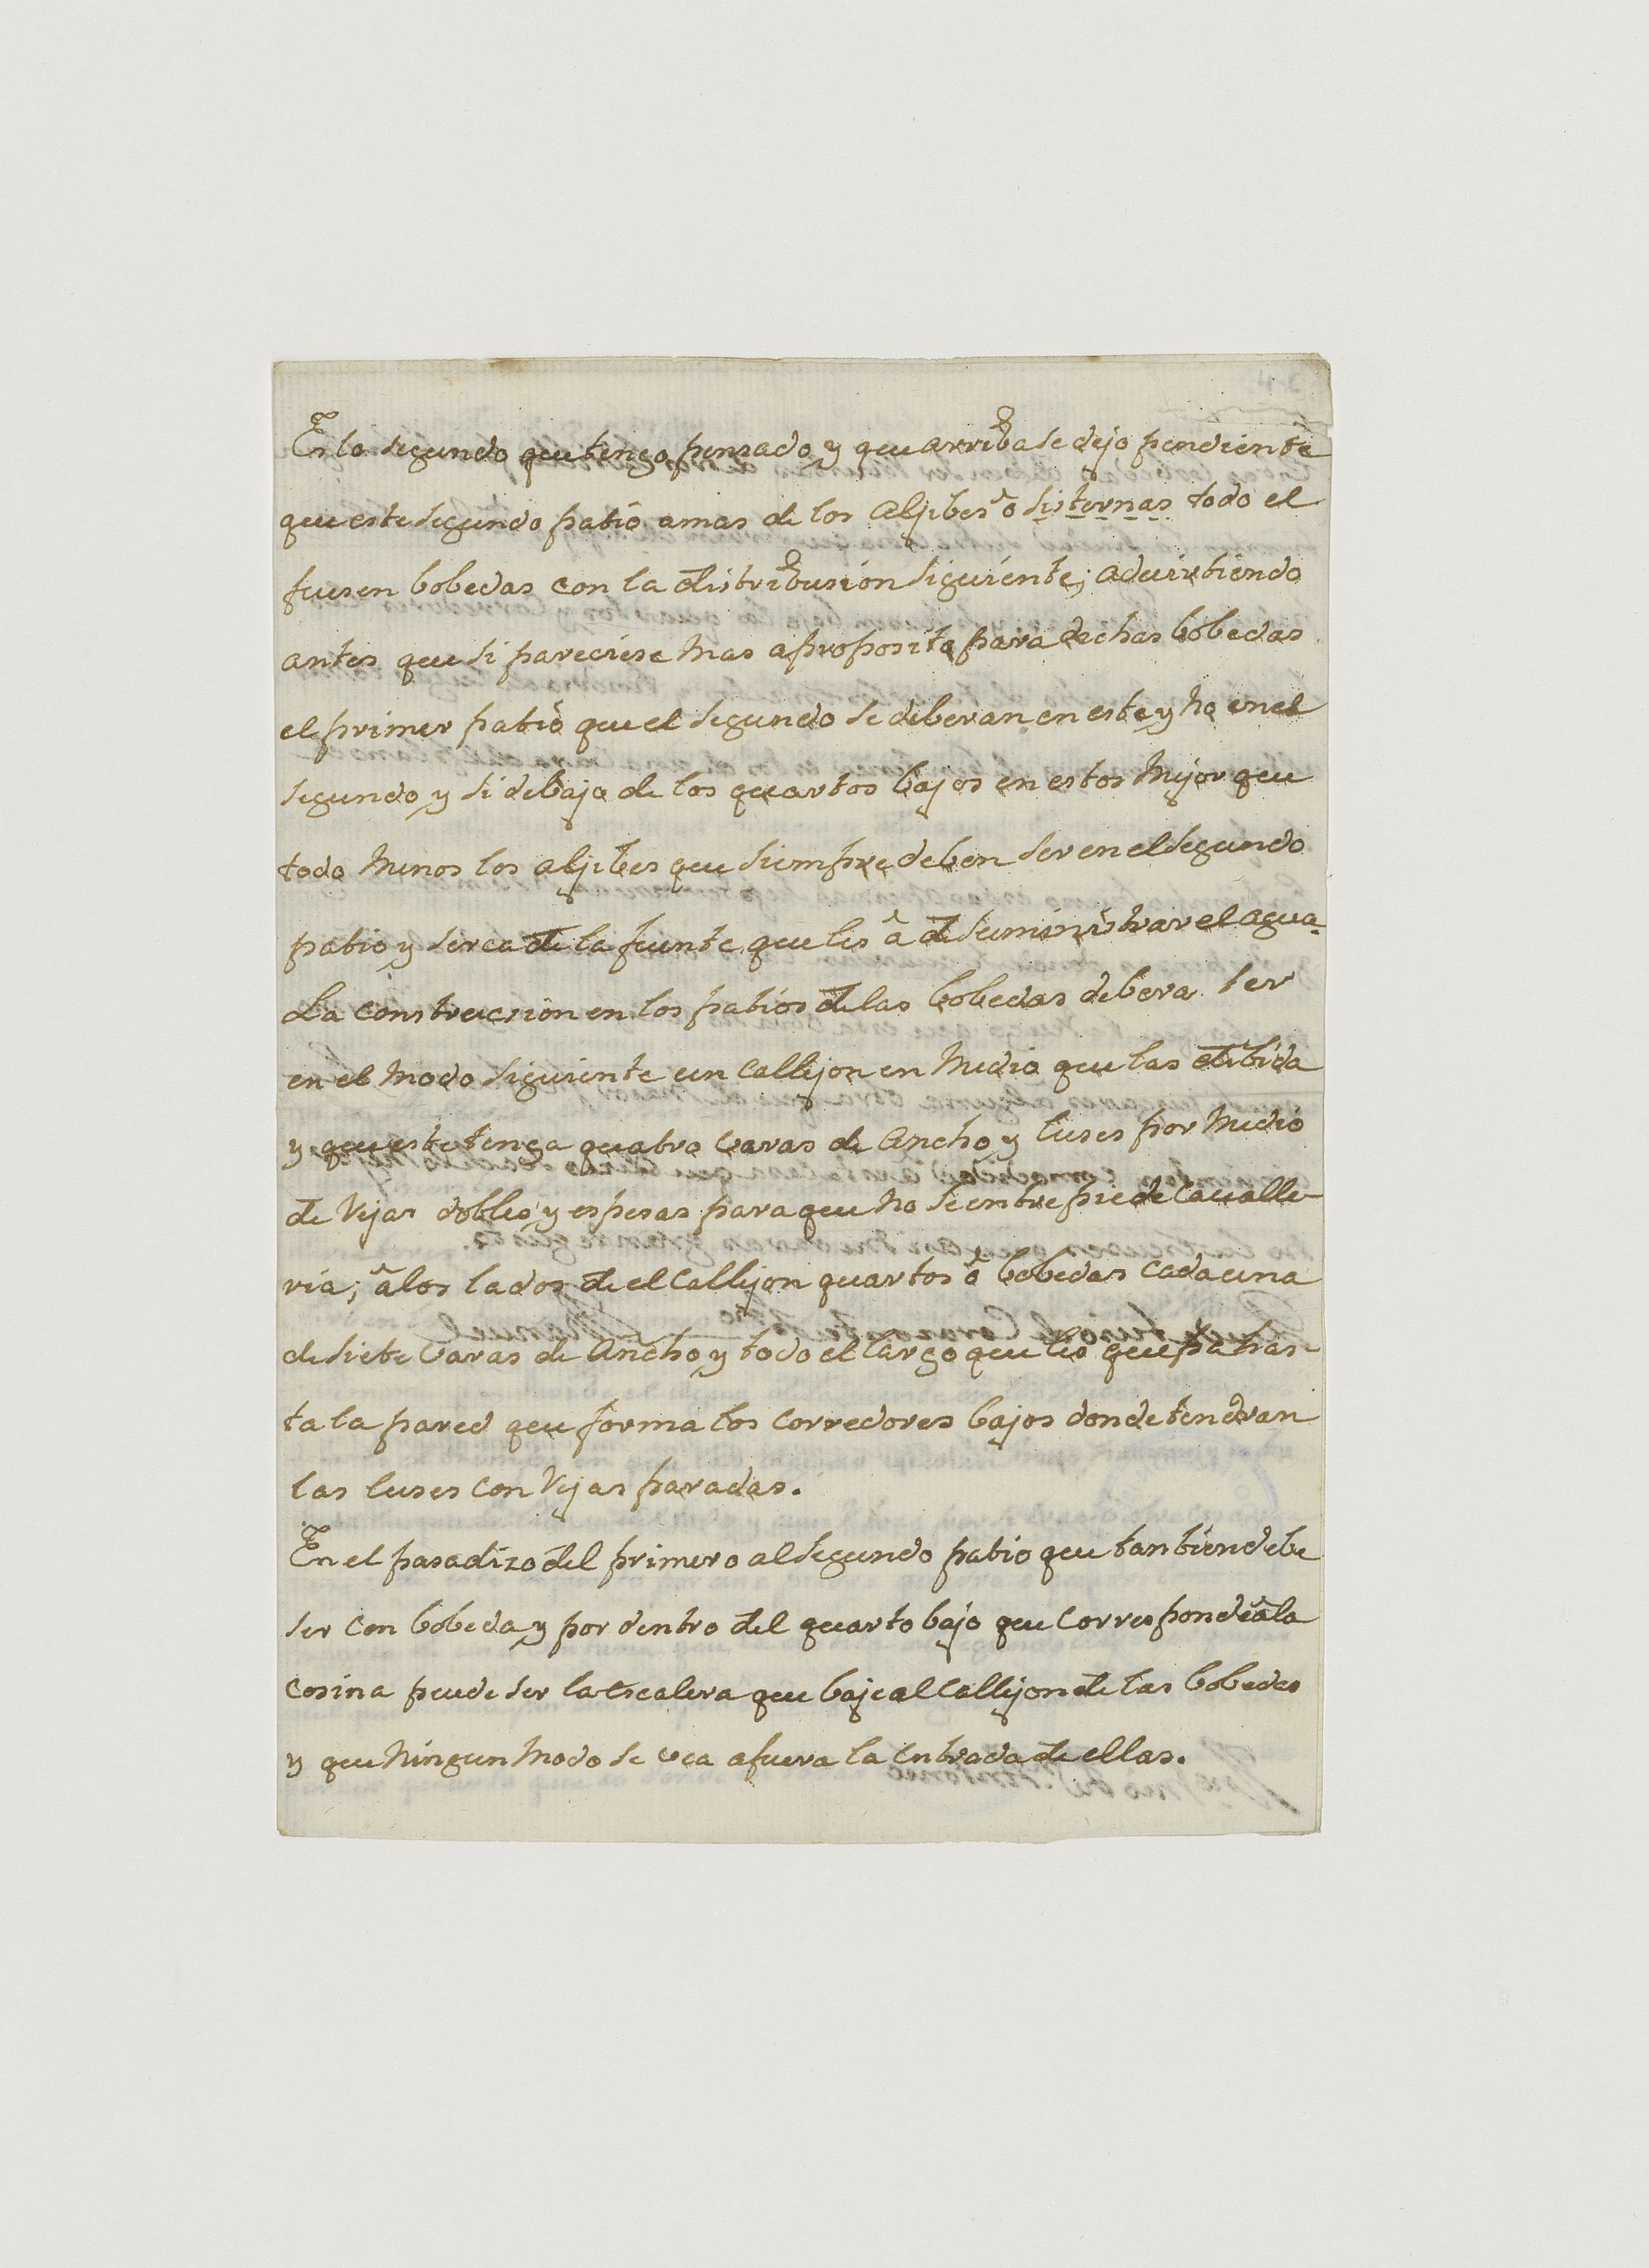 Es lo segundo que tengo pensado y que arriba se dejo pendiente
que este segundo patio amas de los Aljibes ô sisternas todo el
fuesen bobedas con la distribusion siguiente; aduirtiendo
antes que si pareciese mas aproposito para dichas bobedas
el primer patio que el segundo se deberan en este y no en el
segundo y si debajo de los quartos bajos en estos mejor que
todo menos los aljibes que siempre deben ser en el segundo
patio y serca de la fuente que les â de suministrar el agua.
La construcsion en los patios de las bobedas debera ser
en el modo siguiente un callejon en medio que las dibida
y que este tenga quatro varas de Ancho y luses por medio
de Rejas dobles y espesas para que no se entre pie de Caualle-
ria; â los lados de el callejon quartos ô bobedas cada una
de siete varas de Ancho y todo el largo que les quepa has-
ta la pared que forma los corredores bajos donde tendran
las luses con Rejas paradas.
En el pasadizo del primero al segundo patio que tanbien debe
ser con bobeda y por dentro del quarto bajo que corresponde â la
cosina puede ser la escalera que baje al callejon de las bobedas
y que ningun modo se vea afuera la entrada de ellas.